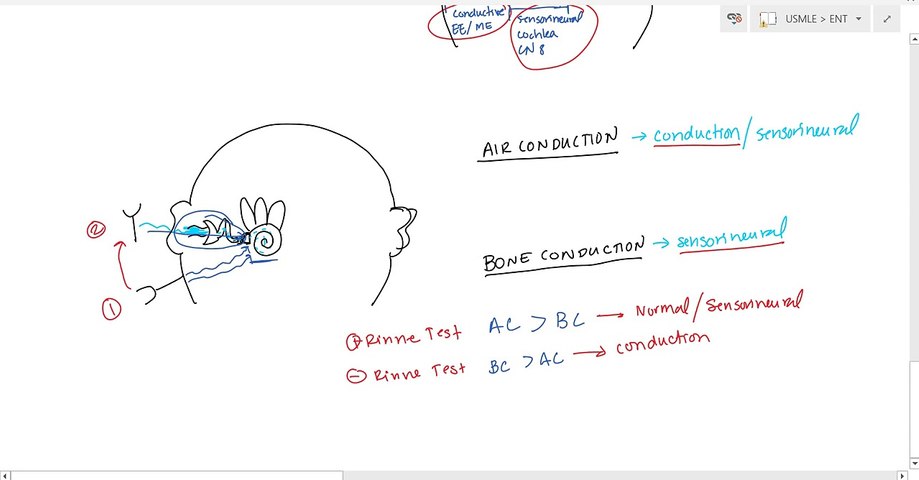 USMLE > ENT
conductive
EE/ME
sensorineural
cochlea
CN 8
AIR CONDUCTION → conduction/sensorineural
②
BONE CONDUCTION → sensorineural
①
⊕ Rinne Test AC > BC → Normal/Sensorineural
⊖ Rinne Test BC > AC → conduction